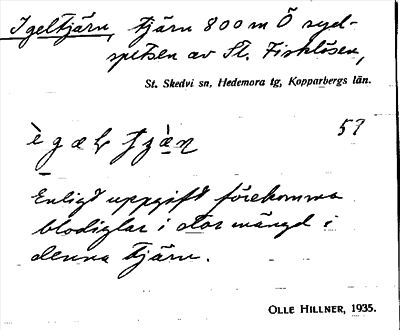 Igeltjärn, tjärn 800 m Ö syd-
spetsen av St. Fisklösen,
St. Skedvi sn, Hedemora tg, Kopparbergs län.
57
Enligt uppgift förekomma
blodiglar i stor mängd i
denna tjärn.
OLLE HILLNER, 1935.